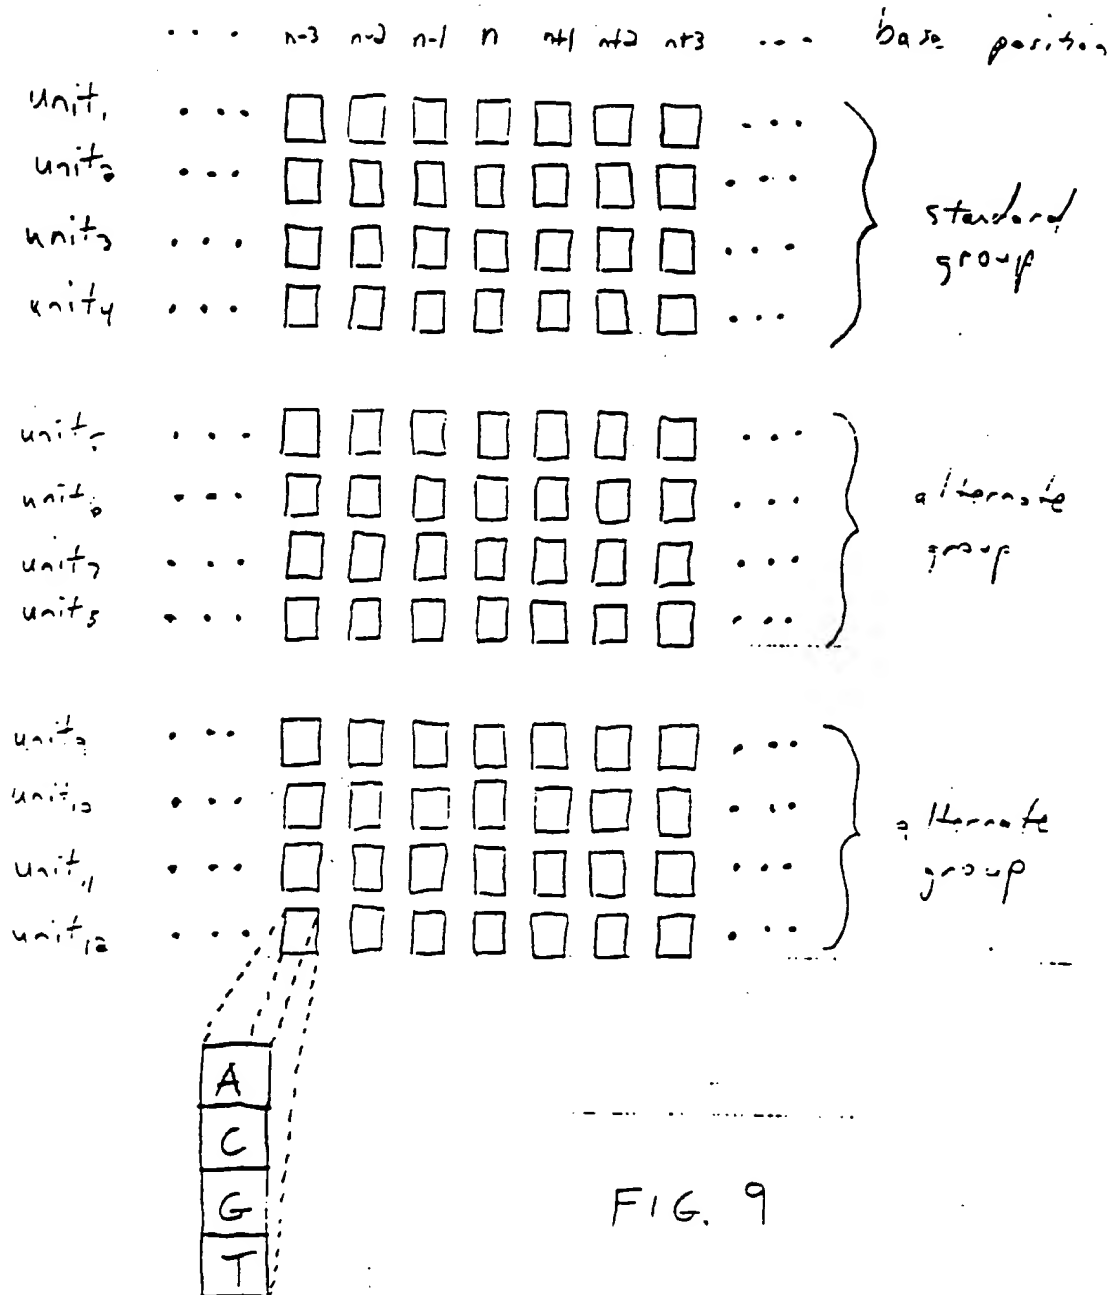 ... n-3 n-2 n-1 n n+1 n+2 n+3 ... base position
unit₁ ... ...
unit₂ ... ...
unit₃ ... ...
unit₄ ... ...
standard
group
unit₅ ... ...
unit₆ ... ...
unit₇ ... ...
unit₈ ... ...
alternate
group
unit₉ ... ...
unit₁₀ ... ...
unit₁₁ ... ...
unit₁₂ ... ...
alternate
group
A
C
G
T
FIG. 9